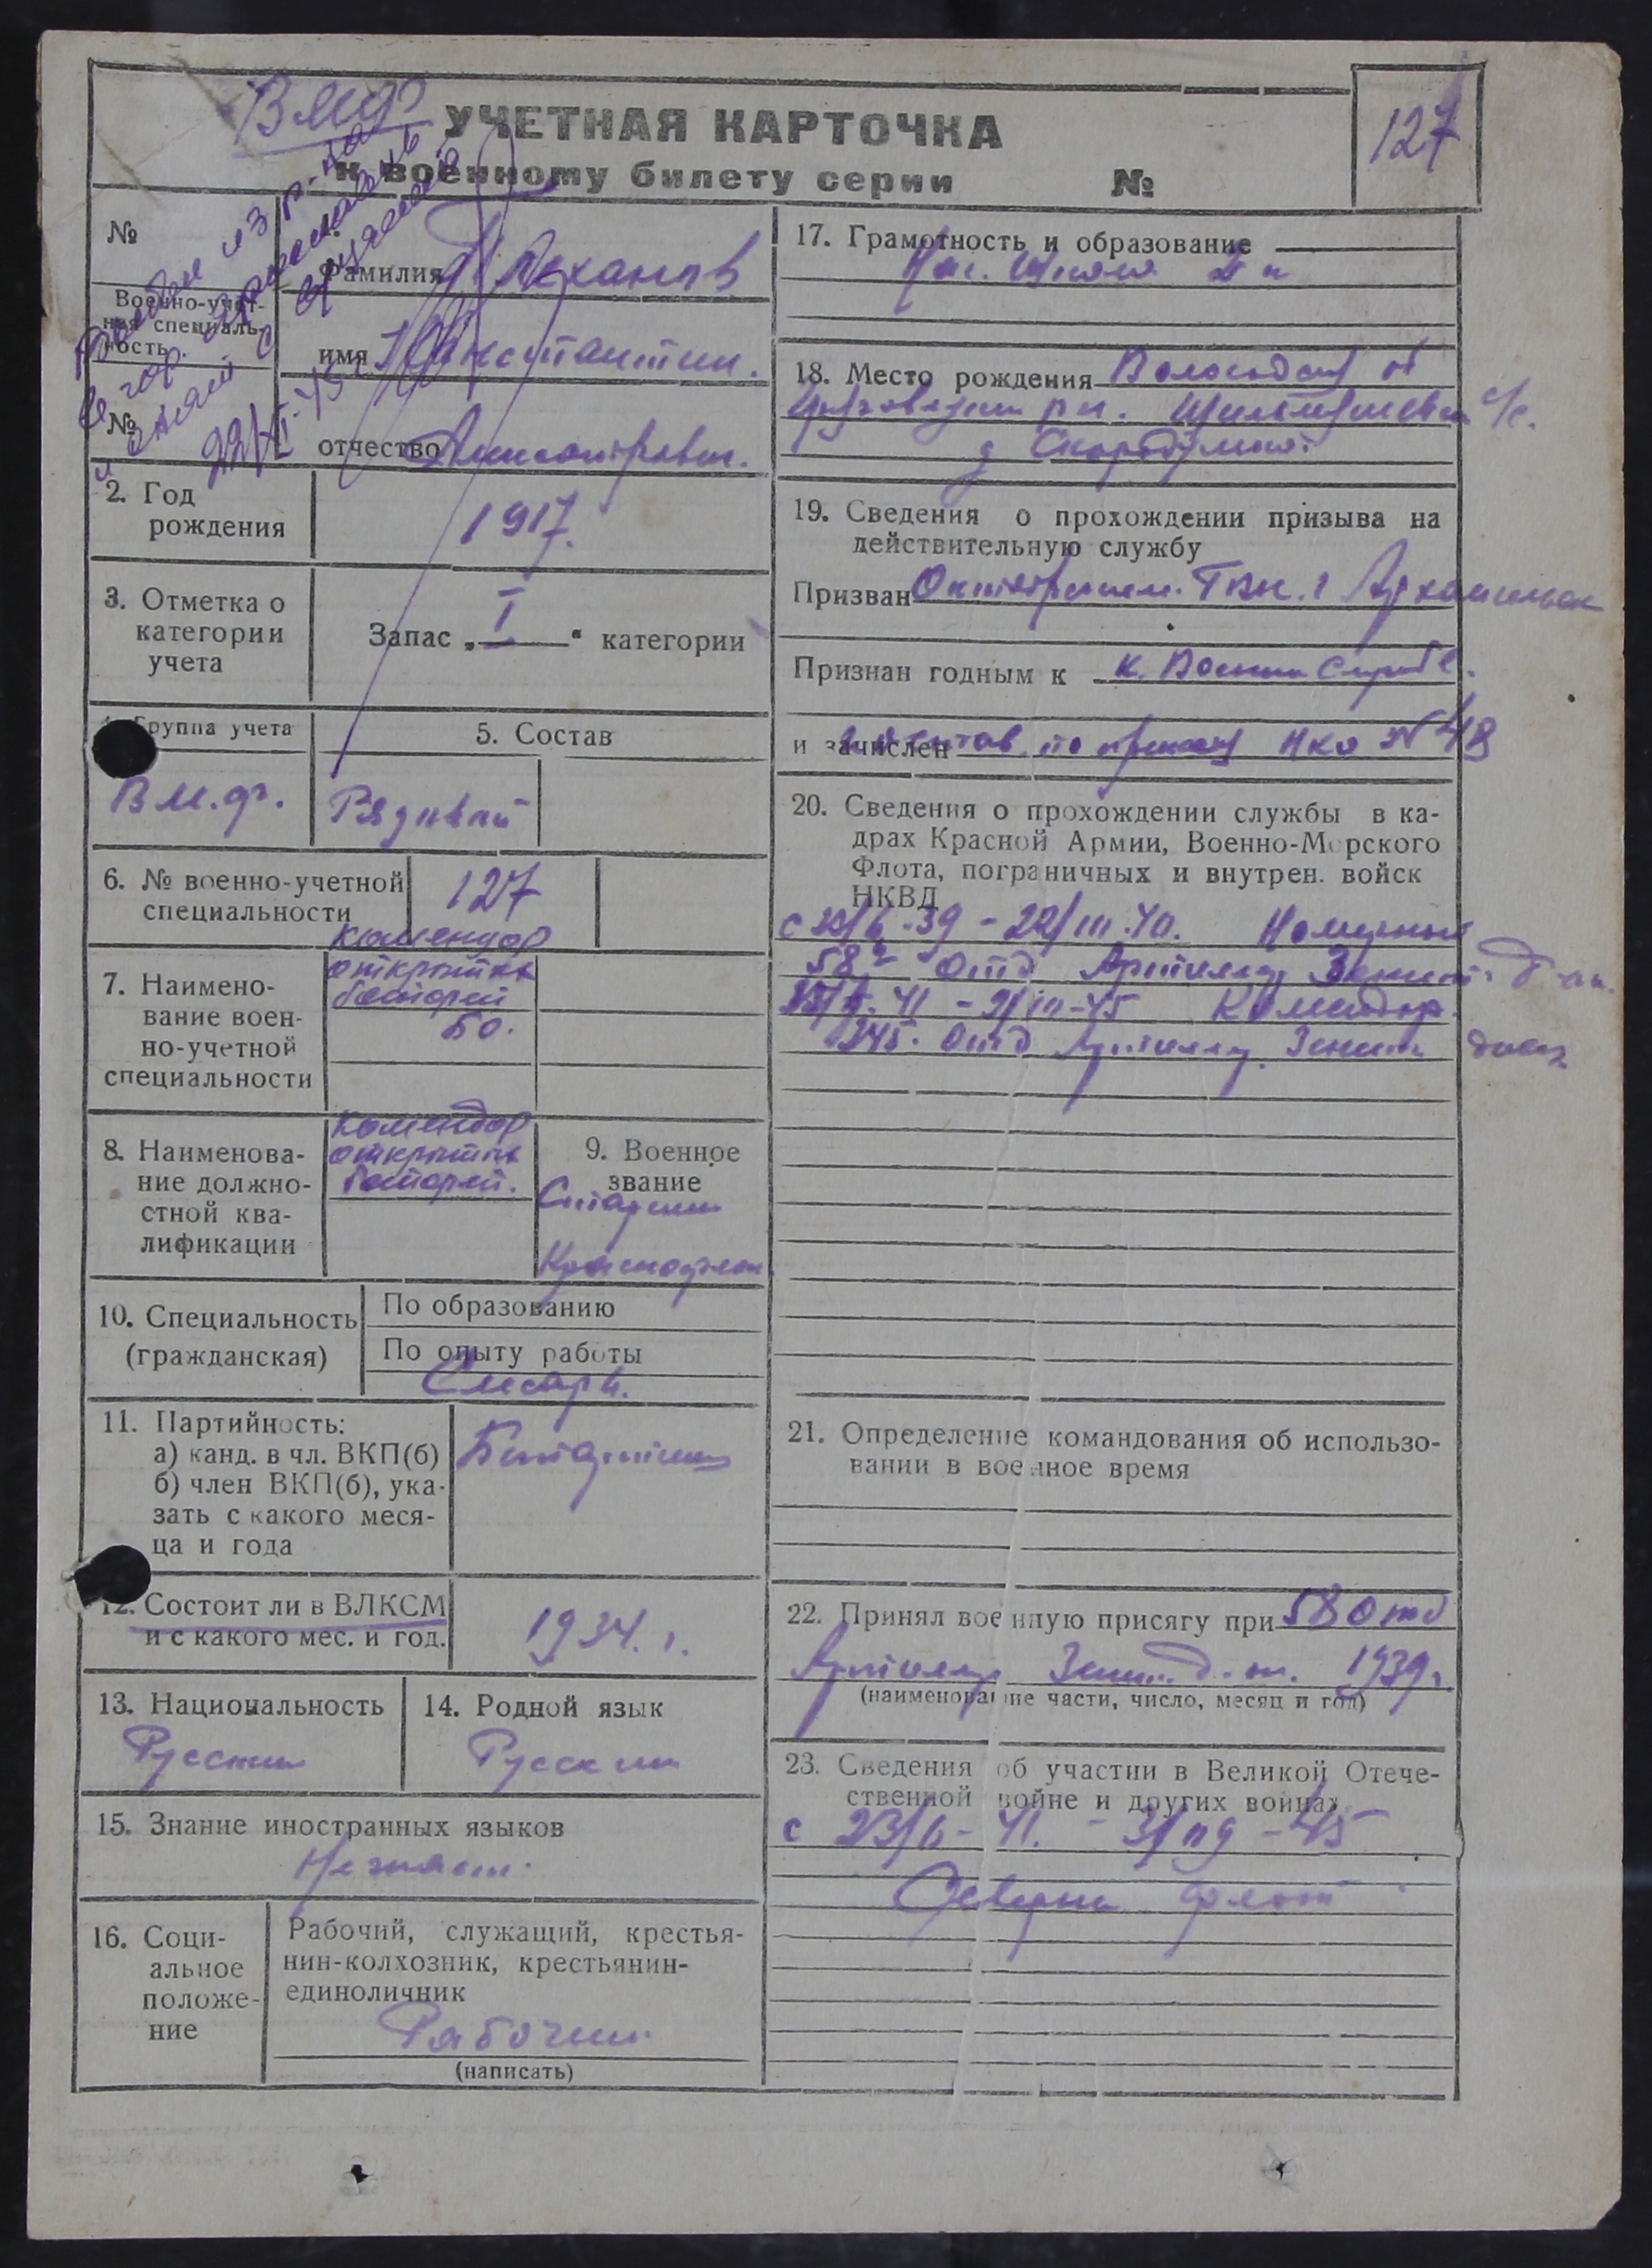 В М Ф
УЧЕТНАЯ КАРТОЧКА
к военному билету серии №
127
Выбыл из р-на
в гор. Архангельск
и снят с
22/XI-45 г
№
Военно-учет-
ная специаль-
ность
№
1.
Фамилия Плеханов
имя Константин.
отчество
2. Год
рождения
1917.
3. Отметка о
категории
учета
Запас „ I " категории
4. Группа учета
В М. Ф.
5. Состав
Рядовой
6. № военно-учетной
специальности
127
7. Наимено-
вание воен-
но-учетной
специальности
Комендор
открытых
батарей
БО.
8. Наименова-
ние должно-
стной ква-
лификации
Комендор
открытых
батарей.
9. Военное
звание
Старший
Краснофлот
10. Специальность
(гражданская)
По образованию
По опыту работы
Слесарь.
11. Партийность:
а) канд. в чл. ВКП(б)
б) член ВКП(б), ука-
зать с какого меся-
ца и года
Беспартийный
12. Состоит ли в ВЛКСМ
и с какого мес. и год.
1934. г.
13. Национальность
Русский
14. Родной язык
Русский
15. Знание иностранных языков
Не знает.
16. Соци-
альное
положе-
ние
Рабочий, служащий, крестья-
нин-колхозник, крестьянин-
единоличник
Рабочий.
(написать)
17. Грамотность и образование
Нач. Школа
18. Место рождения Вологодская об
с/с.
д
19. Сведения о прохождении призыва на
действительную службу
Призван Октябрьским. РВК. г Архангельск
Признан годным к к. Военной Службе.
и зачислен по приказу НКО № 48
20. Сведения о прохождении службы в ка-
драх Красной Армии, Военно-Морского
Флота, пограничных и внутрен. войск
НКВД
-39 - 22/III.40.
58й отд Артиллер. Зенит.
41 - 45 Комендор.
245. отд Артиллер. Зенит дивиз
21. Определение командования об использо-
вании в военное время
22. Принял военную присягу при 58 отд
Артиллер Зенит. 1939 г.
(наименование части, число, месяц и год)
23. Сведения об участии в Великой Отече-
ственной войне и других войнах
с 23/6 - 41. - 45
Северный флот